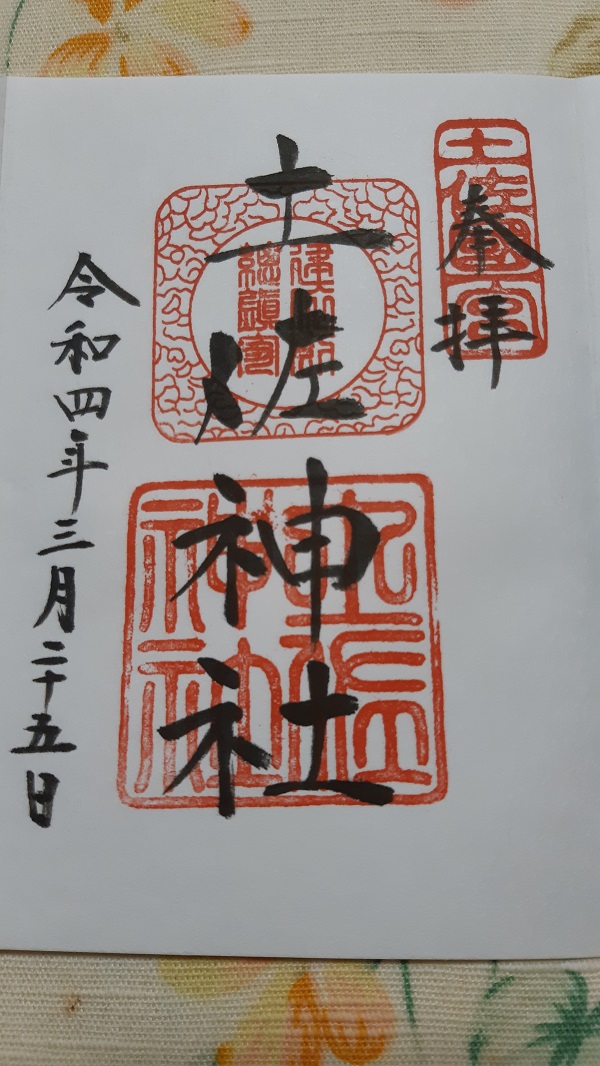 土佐國一宮
奉拝
土佐神社
土佐
神社
令和四年三月二十五日